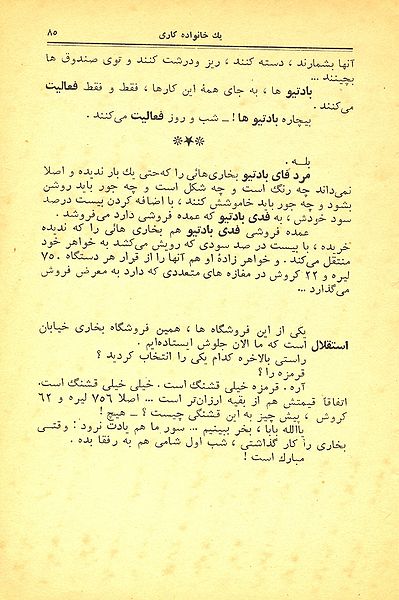 یك خانواده کاری ۸۵
آنها بشمارند ، دسته کنند ، ریز ودرشت کنند و توی صندوق ها
بچینند ...
بادتیو ها ، به جای همهٔ این کارها ، فقط و فقط فعالیت
می‌کنند .
بیچاره بادتیو ها ! ــ شب و روز فعالیت می‌کنند .
***
بلـه .
مرد فای بادتیو بخاری‌هائی را که‌حتی یك بار ندیده و اصلا
نمی‌داند چه رنگ است و چه شکل است و چه جور باید روشن
بشود و چه جور باید خاموشش کنند ، با اضافه کردن بیست درصد
سود خودش ، به فدی بادتیو که عمده فروشی دارد می‌فروشد .
عمده فروشی فدی بادتیو هم بخاری هائی را که ندیده
خریده ، با بیست در صد سودی که رویش می‌کشد به خواهر خود
منتقل می‌کند . و خواهر زادهٔ او هم آنها را از قرار هر دستگاه ۷۵۰
لیره و ۲۲ کروش در مغازه های متعددی که دارد به معرض فروش
می‌گذارد ...
یکی از این فروشگاه ها ، همین فروشگاه بخاری خیابان
استقلال است که ما الان جلوش ایستاده‌ایم .
راستی بالاخره کدام یکی را انتخاب کردید ؟
قرمزه را ؟
آره . قرمزه خیلی قشنگ است . خیلی خیلی قشنگ است.
اتفاقاً قیمتش هم از بقیه ارزان‌تر است ... اصلا ۷۵۶ لیره و ۶۲
کروش ، پیش چیز به این قشنگی چیست ؟ ــ هیچ !
یاالله بابا ، بخر ببینیم ... سور ما هم یادت نرود : وقتـی
بخاری را کار گذاشتی ، شب اول شامی هم به رفقا بده .
مبارك است !